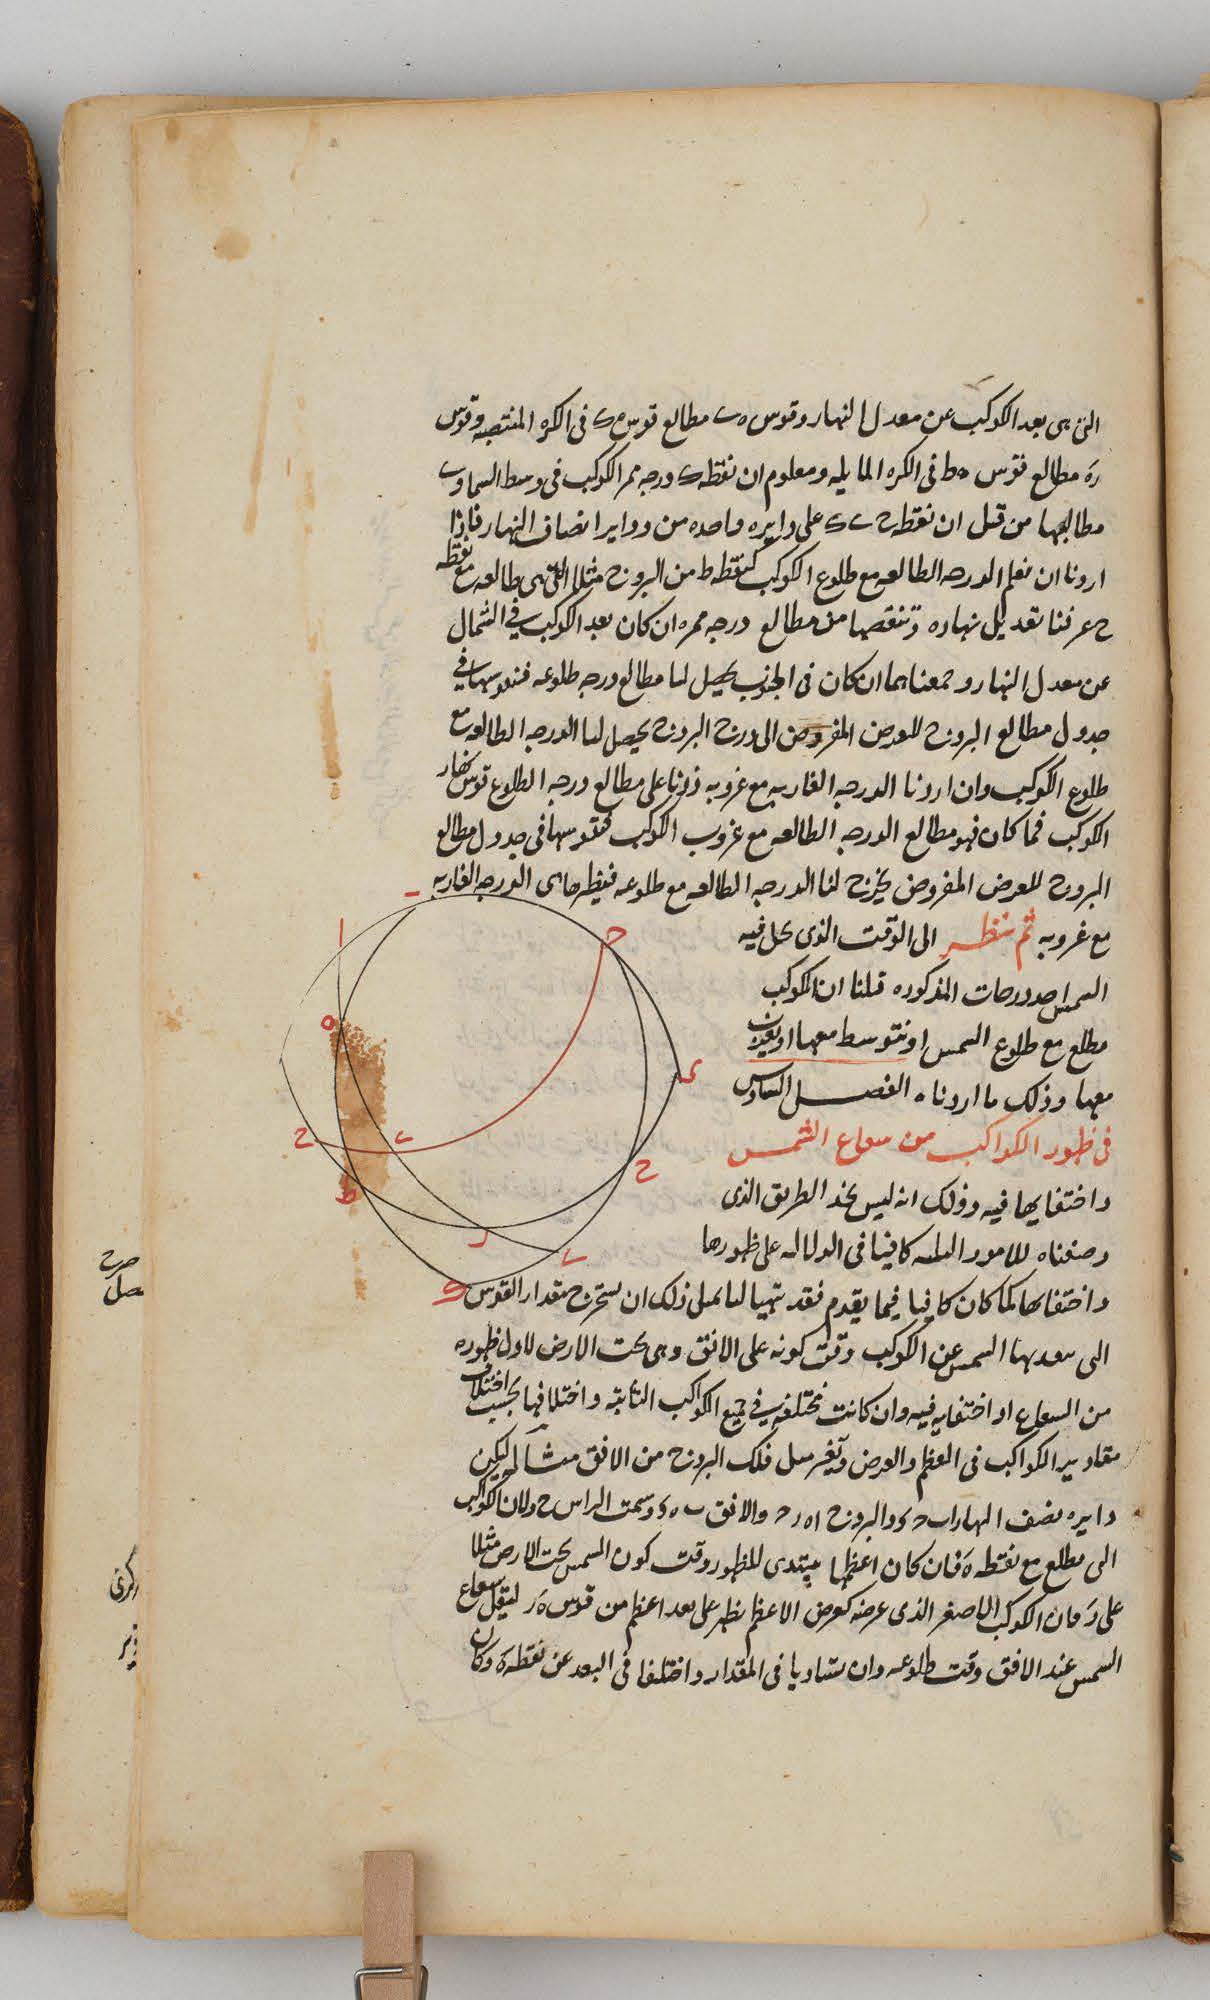 التى هى بعد الكوكب عن معدل النهار وقوس ه ى مطالع قوس ه ك فى الكره المنتصبه وقوس
ره مطالع قوس ه ط فى الكره المايله ومعلوم ان نقطه ك درجه ممر الكوكب فى وسط السما و ى
مطالعها من قبل ان نقطه ح ى ك على دايره واحده من دواير انصاف النهار فاذا
اردنا ان نعلم الدرجه الطالعه مع طلوع الكوكب كنقطه ط من البروج مثلا التى هى طالعه مع نقطه
ح عرفنا تعديل نهاره وتنقصها من مطالع درجه ممره ان كان بعد الكوكب فى الشمال
عن معدل النهار وجمعناهما ان كان فى الجنوب يحصل لنا مطالع درجه طلوعه فنقوسها فى
جدول مطالع البروج للعرض المفروض الى درج البروج يحصل لنا الدرجه الطالعه مع
طلوع الكوكب وان اردنا الدرجه الغاربه مع غروبه زدنا على مطالع درجه الطلوع قوس نهار
الكوكب فما كان فهو مطالع الدرجه الطالعه مع غروب الكوكب فنقوسها فى جدول مطالع
البروج للعرض المفروض يخرج لنا الدرجه الطالعه مع طلوعه فنظيرها هى الدرجه الغاربه
مع غروبه ثم ننظر الى الوقت الذى تحل فيه
الشمس احد درجات المذكوره قلنا ان الكوكب
مطلع مع طلوع الشمس او نتوسط معها او يغرب
معها وذلك ما اردناه الفصل السادس
فى ظهور الكواكب من شعاع الشمس
واختفايها فيه وذلك انه ليس نجد الطريق الذى
وصفناه للامور كافيا فى الدلاله على ظهورها
واختفاها كما كان كافيا فيما يقدم فقد تهيا لنا بمثل ذلك ان نستخرج مقدار القوس
التى بعدها الشمس عن الكوكب وقت كونه على الافق وهى تحت الارض لاول ظهوره
من الشعاع او اختفايه فيه وان كانت مختلفه فى جميع الكواكب الثابته واختلافها بحسب اختلاف
مقادير الكواكب فى العظم والعرض وتغير ميل فلك البروج من الافق مثاله ليكن
دايره نصف النهار ا ب ح د والبروج ا ه ر ح والافق ب ه د وسمت الراس ح ولان الكوكب
التى مطلع مع نقطه ه فان كان اعظمها يبتدى للظهور وقت كون الشمس تحت الارض مثلا
على ر فان الكوكب الاصغر الذى عرضه كعرض الاعظم يظهر على بعد اعظم من قوس ه ر ليقل شعاع
الشمس عند الافق وقت طلوعه وان تساويا فى المقدار واختلفا فى البعد عن نقطه ه وكان
ب
ا
ح
ه
ى
ح
ى
ح
ط
ر
ى
ك